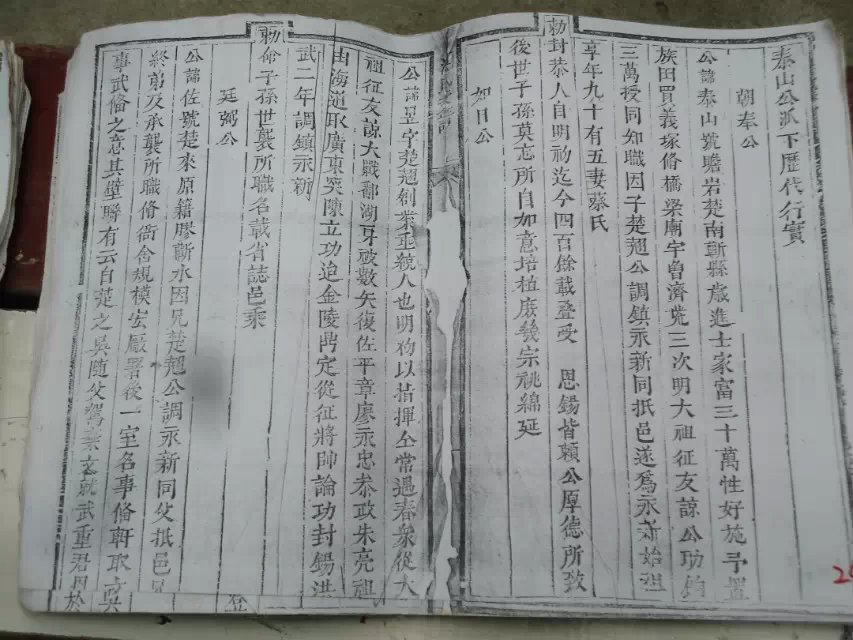 泰山公派下歷代行實
朝奉公
公諱泰山號瞻岩楚南蘄縣歲進士家富三十萬性好施予置
族田買義塚脩橋梁廟宇魯濟荒三次明大祖征友諒公助餉
三萬授同知職因子楚翹公調鎮永新同抵邑遂爲永新始祖
享年九十有五妻蔡氏
勅封恭人自明初迄今四百餘載叠受 恩錫皆賴公厚德所致
後世子孫莫忘所自如意培植庶幾宗祧綿延
如日公
公諱昱字楚翹創業垂統人也明初以指揮僉常遇春衆從大
祖征友諒大戰鄱湖身被數矢復佐平章廖永忠叅政朱亮祖
由海道取廣東突陳立功迨金陵鼎定從征將帥論功封錫洪
武二年調鎮永新
勅命子孫世襲所職名載省誌邑乘
廷弼公
公諱佐號楚來原籍膠蘄水因兄楚翹公調永新同父抵邑
終弟及承襲所職脩衙舍規模宏厰署後一室名事脩軒取
事武脩之意其壁聯有云自楚之吳隨父鶚業文就武重君恩於